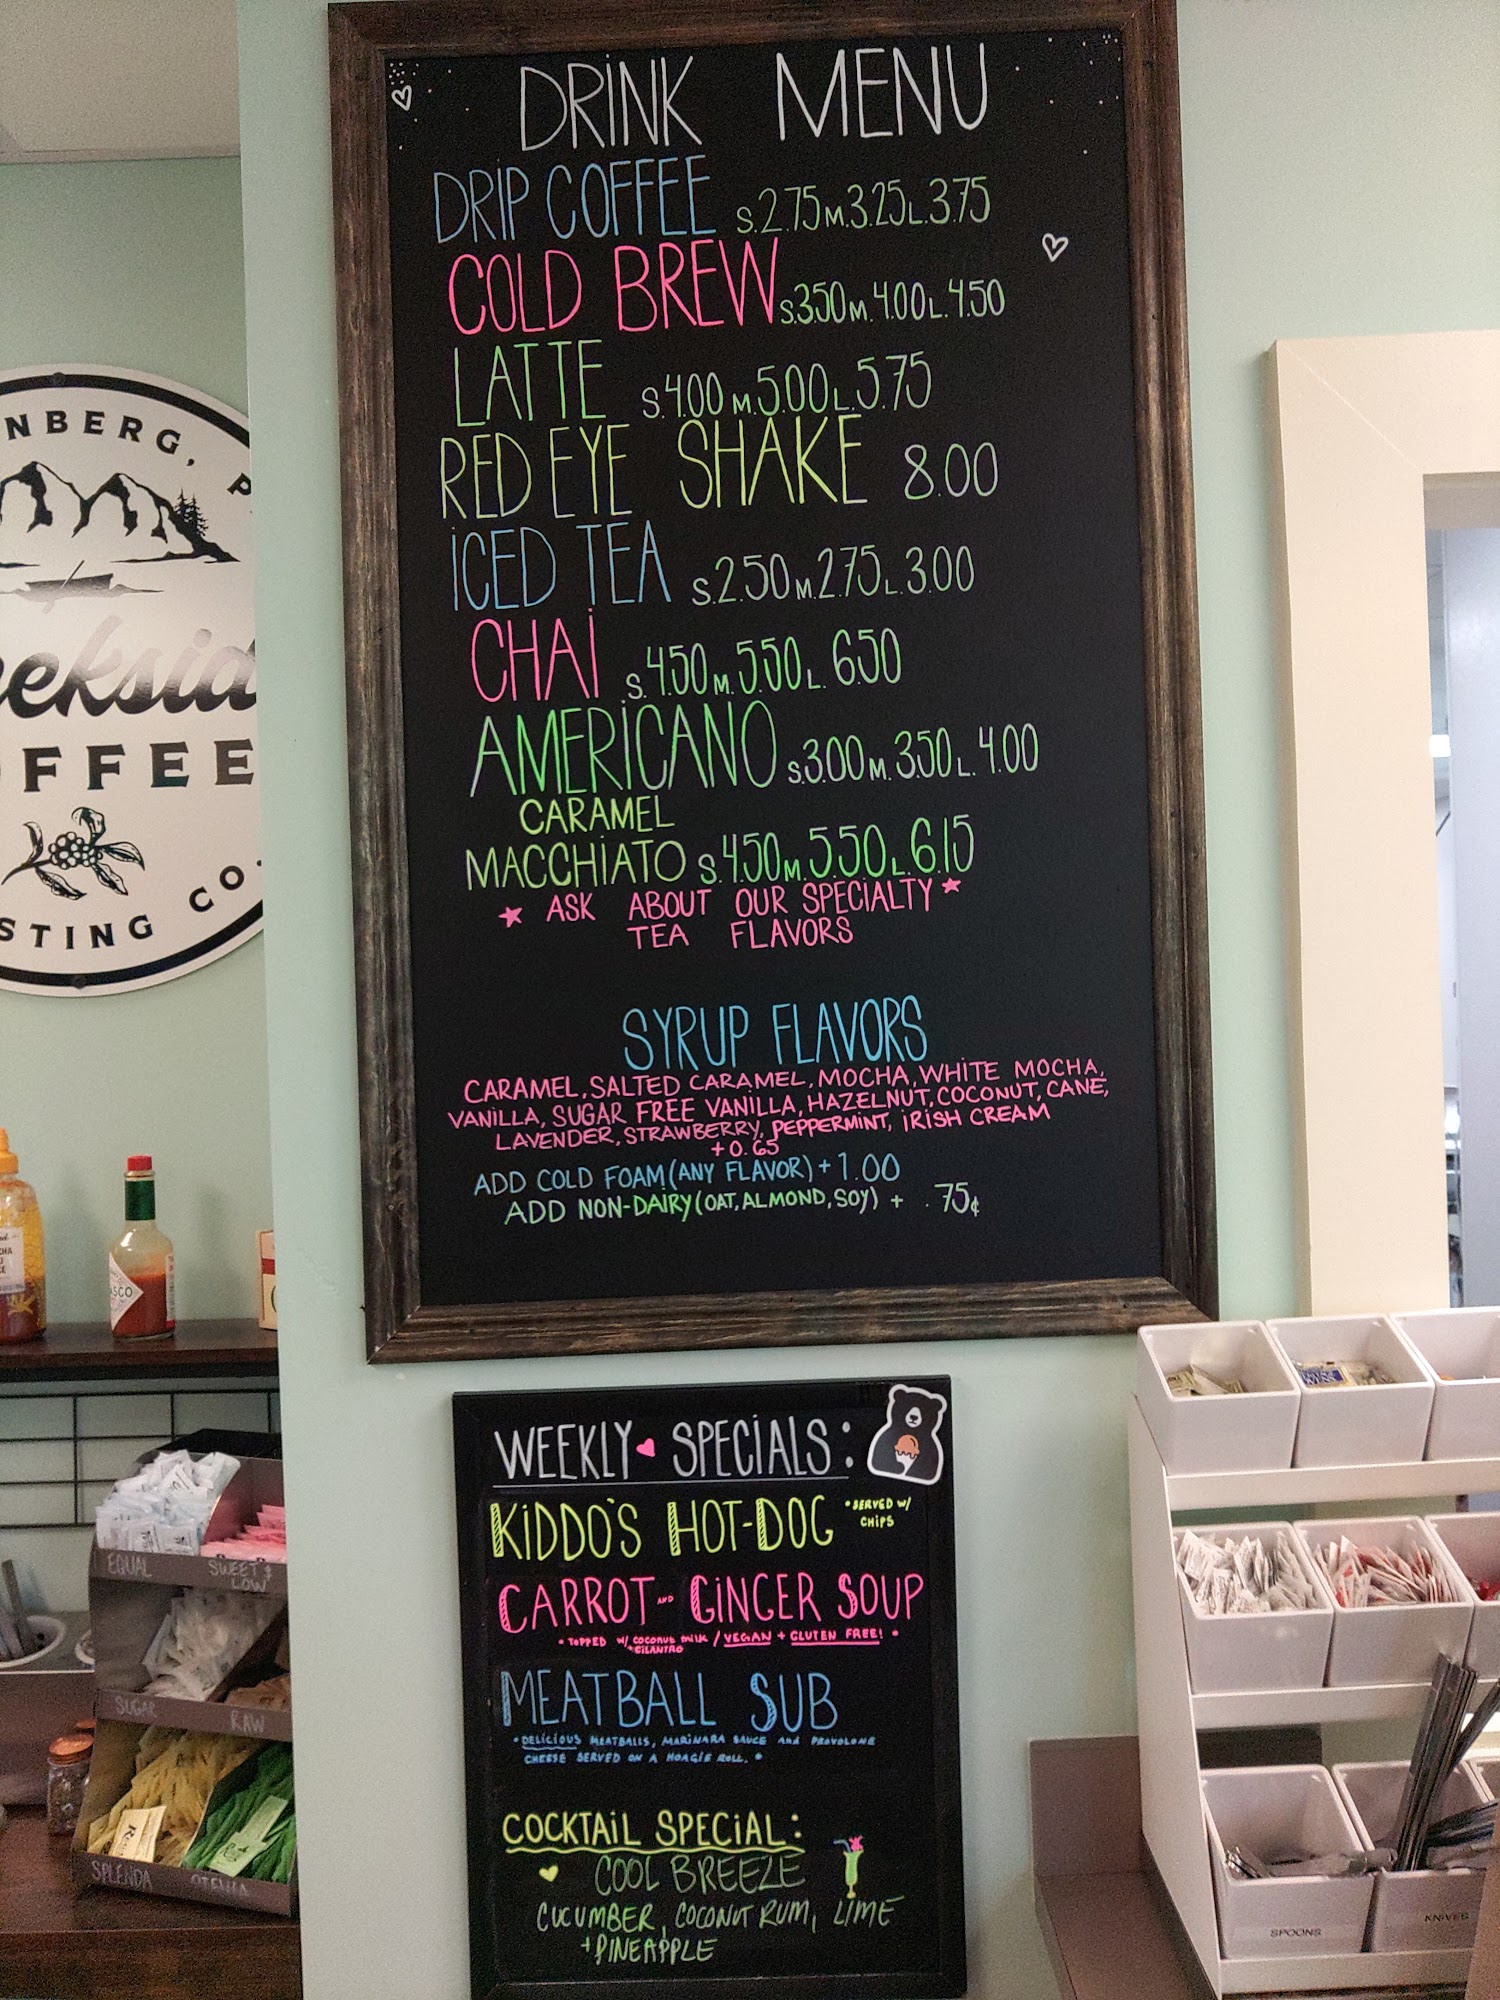 DRINK MENU
DRIP COFFEE S.2.75 M.3.25 L.3.75
COLD BREW S.3.50 M.4.00 L.4.50
LATTE S.4.00 M.5.00 L.5.75
RED EYE SHAKE 8.00
ICED TEA S.2.50 M.2.75 L.3.00
CHAI S.4.50 M.5.50 L.6.50
AMERICANO S.3.00 M.3.50 L.4.00
CARAMEL
MACCHIATO S.4.50 M.5.50 L.6.15
★ ASK ABOUT OUR SPECIALTY ★
TEA FLAVORS
SYRUP FLAVORS
CARAMEL, SALTED CARAMEL, MOCHA, WHITE MOCHA,
VANILLA, SUGAR FREE VANILLA, HAZELNUT, COCONUT, CANE,
LAVENDER, STRAWBERRY, PEPPERMINT, IRISH CREAM
+0.65
ADD COLD FOAM (ANY FLAVOR) + 1.00
ADD NON-DAIRY (OAT, ALMOND, SOY) + .75¢
WEEKLY SPECIALS:
KIDDO'S HOT-DOG • SERVED W/
CHIPS
CARROT AND GINGER SOUP
• TOPPED W/ COCONUT MILK / VEGAN + GLUTEN FREE! •
+ CILANTRO
MEATBALL SUB
• DELICIOUS MEATBALLS, MARINARA SAUCE AND PROVOLONE
CHEESE SERVED ON A HOAGIE ROLL. •
COCKTAIL SPECIAL:
COOL BREEZE
CUCUMBER, COCONUT RUM, LIME
+ PINEAPPLE
NBERG, P
eekside
OFFEE
STING CO.
ASCO
EQUAL
SWEET &
LOW
SUGAR
RAW
SPLENDA
STEVIA
SPOONS
KNIVES